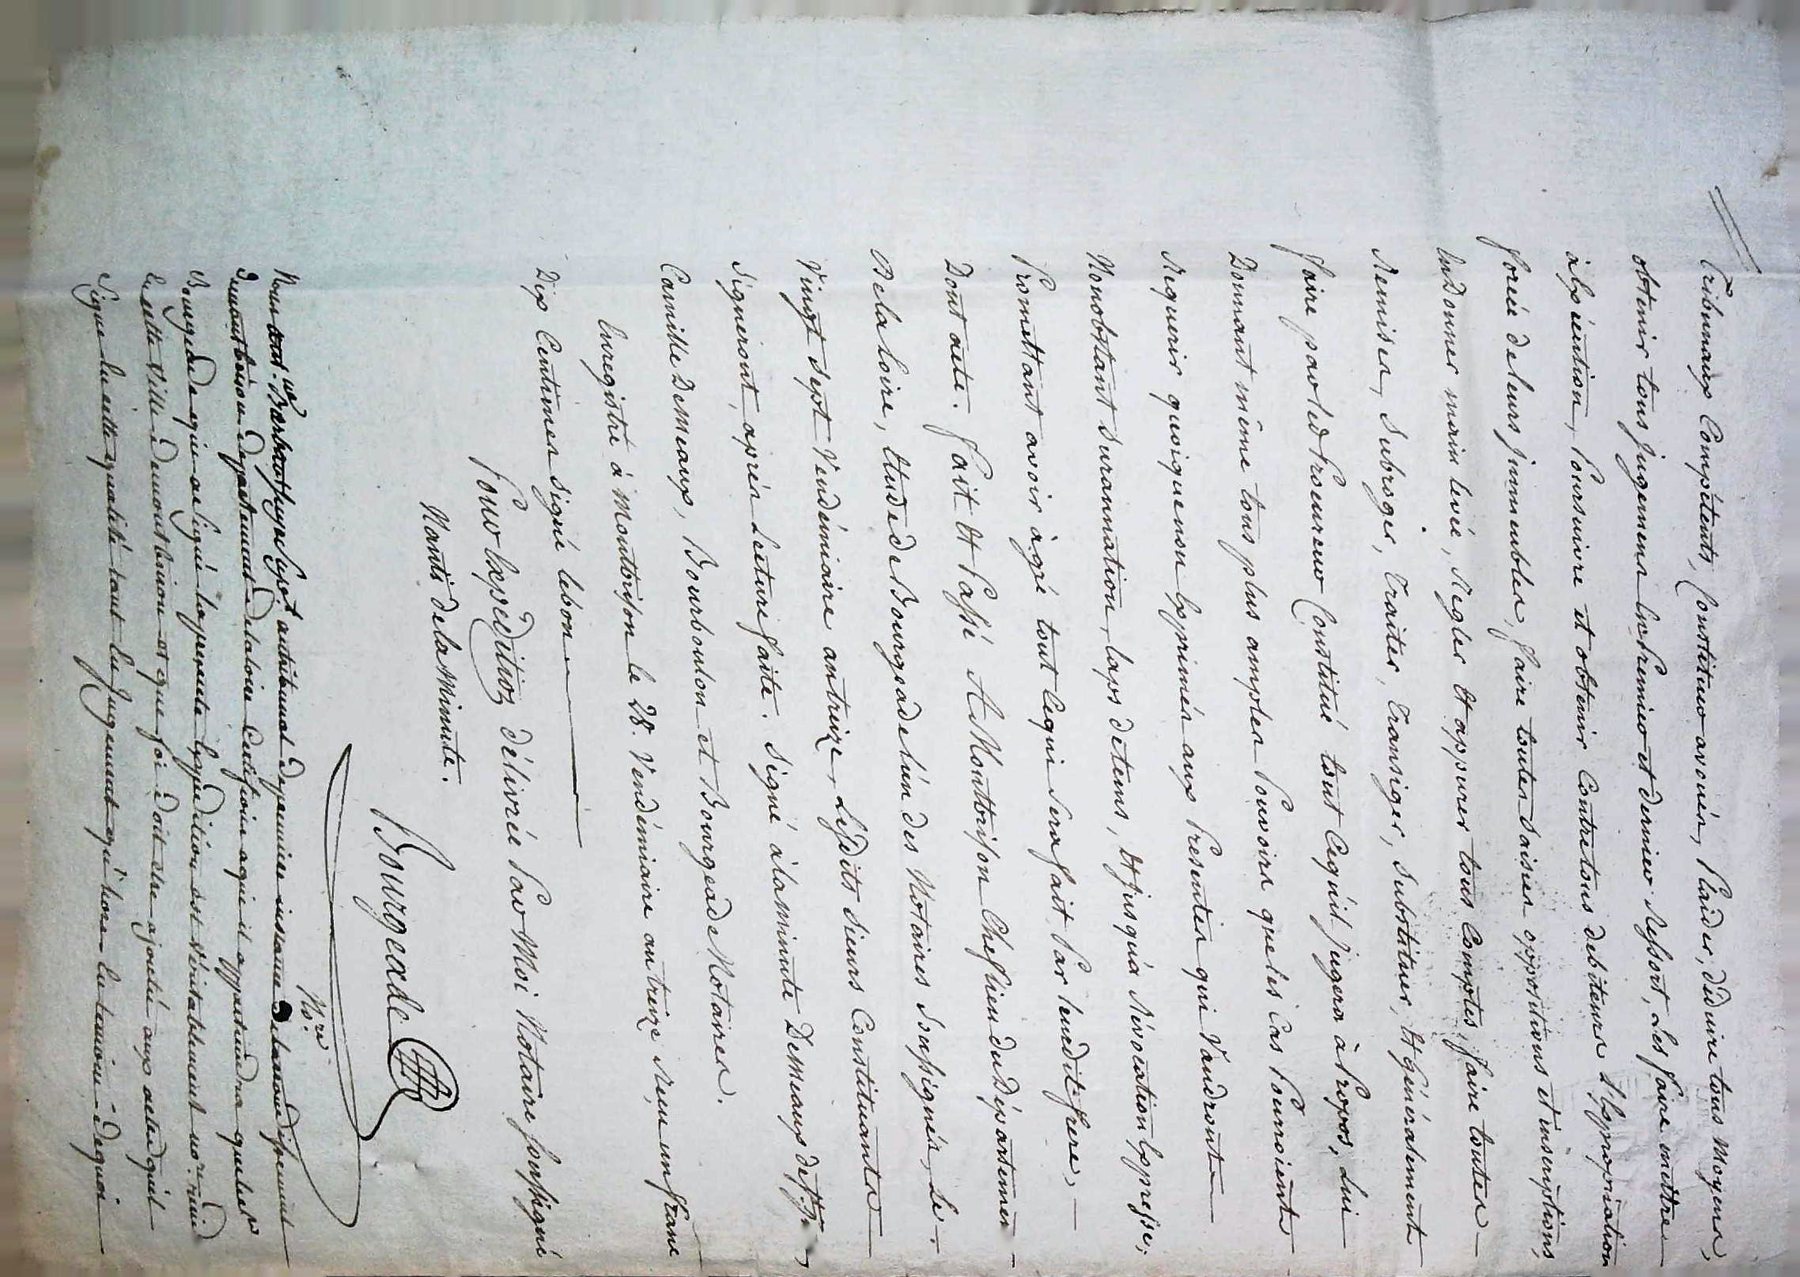 Tribunaux Compétents, Constituer avoués, Plaider, déduire tous Moyens,
obtenir tous Jugemens en Premier et dernier Ressort, Les faire mettre
à Exécution, Poursuivre et obtenir Contre tous debiteurs L'Expropriation
forcée de leurs immeubles, faire toutes Saisies oppositions et inscriptions,
en Donner main levée, Regler Et appurer tous Comptes, faire toutes
Remises, Subroger, Traiter, Transiger, Substituer, Et Généralement
faire par led. Procureur Constitué tout Ce qu'il jugera à Propos, Lui
Donnant même tous plus amples Pouvoirs que les Cas Pourroients
Requerir quoique non Exprimés aux Presentes qui Vaudronts
Nonobstant Surannation, laps de tems, Et jusqu'à Révocation Expresse,
Promettant avoir à gré tout Ce qui Sera fait Par leurdit frere,
Dont acte. fait Et Passé A Montbrison Chef lieu du Département
De la Loire, Etude de Bourgeade L'un des Notaires Soussignés, Le
Vingt Sept Vendémiaire an treize, Lesdits Sieurs Constituants
Signeront, après Lecture faite. Signé à la minute Demeaux
Camille Demeaux, Bourboulon et Bourgeade Notaires.
Enregistré à Montbrison le 28. Vendémiaire an treize Reçu un franc
Dix Centimes Signé Lebon
Pour Expédition délivrée Par Moi Notaire Soussigné
Nanti de la Minute.
Bourgeade
Nre
Nous tribunal de premiere instance de
Département de la Loire Certifions a qui il appartiendra que
Bourgeade qui a Signé la presente Expédition est Véritablement
en cette Ville de Montbrison et que foi doit être ajoutée aux actes qu'il
Signe en cette qualité tant en Jugement qu'hors en temoin de quoi